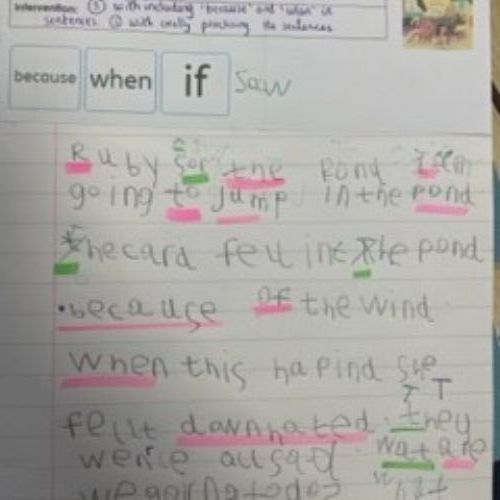 Intervention: ① with including 'because' and 'when' in
sentences ② with orally practising the sentences
because when if saw
Ruby sor the Pond I am
going to jump in the pond
the card fell int the pond
because of the wind
When this hapind she
T T
fellt dawnhated. they
werle all sad. wat are
we going to do? wat